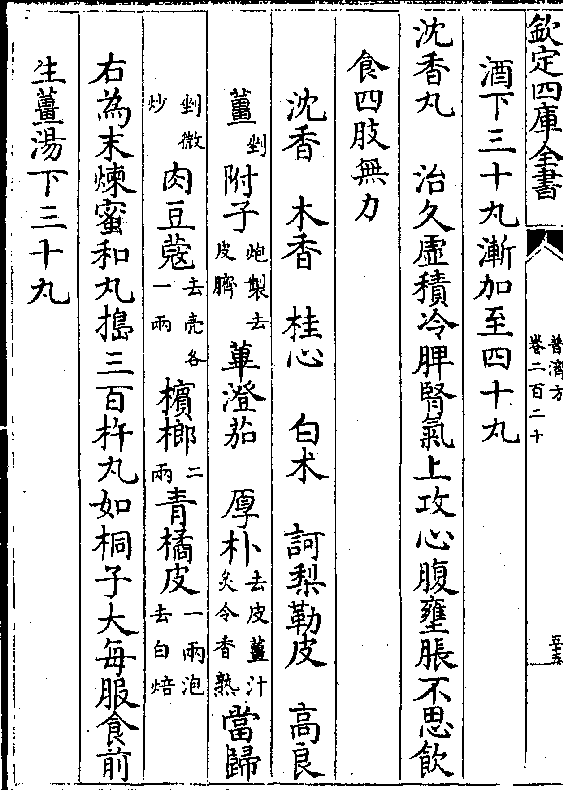 欽定四庫全書
普濟方
卷二百二十
五十五
酒下三十丸漸加至四十丸
沈香丸　治久虛積冷脾腎氣上攻心腹壅脹不思飲
食四肢無力
沈香　木香　桂心　白术　訶梨勒皮　高良
薑剉附子炮製去皮臍蓽澄茄　厚朴去皮薑汁炙令香熟當歸
剉微炒肉豆蔻去殼各一兩檳榔二兩青橘皮一兩泡去白焙
右為末煉蜜和丸搗三百杵丸如桐子大每服食前
生薑湯下三十丸